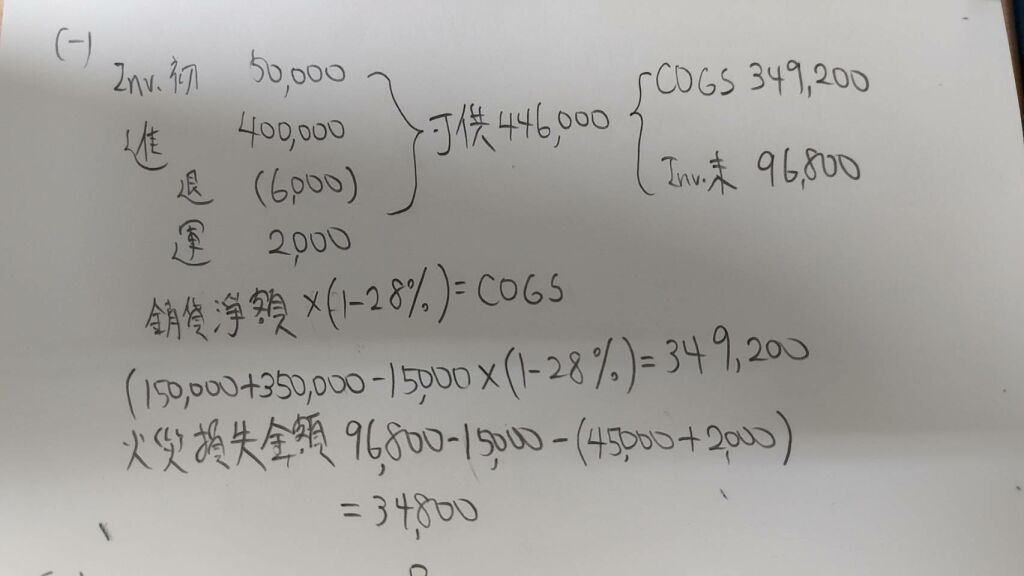 (一)
Inv.初 50,000
進 400,000
退 (6,000)
運 2,000
可供 446,000
COGS 349,200
Inv.末 96,800
銷貨淨額×(1-28%)=COGS
(150,000+350,000-15,000×(1-28%)=349,200
火災損失金額 96,800-15,000-(45,000+2,000)
=34,800